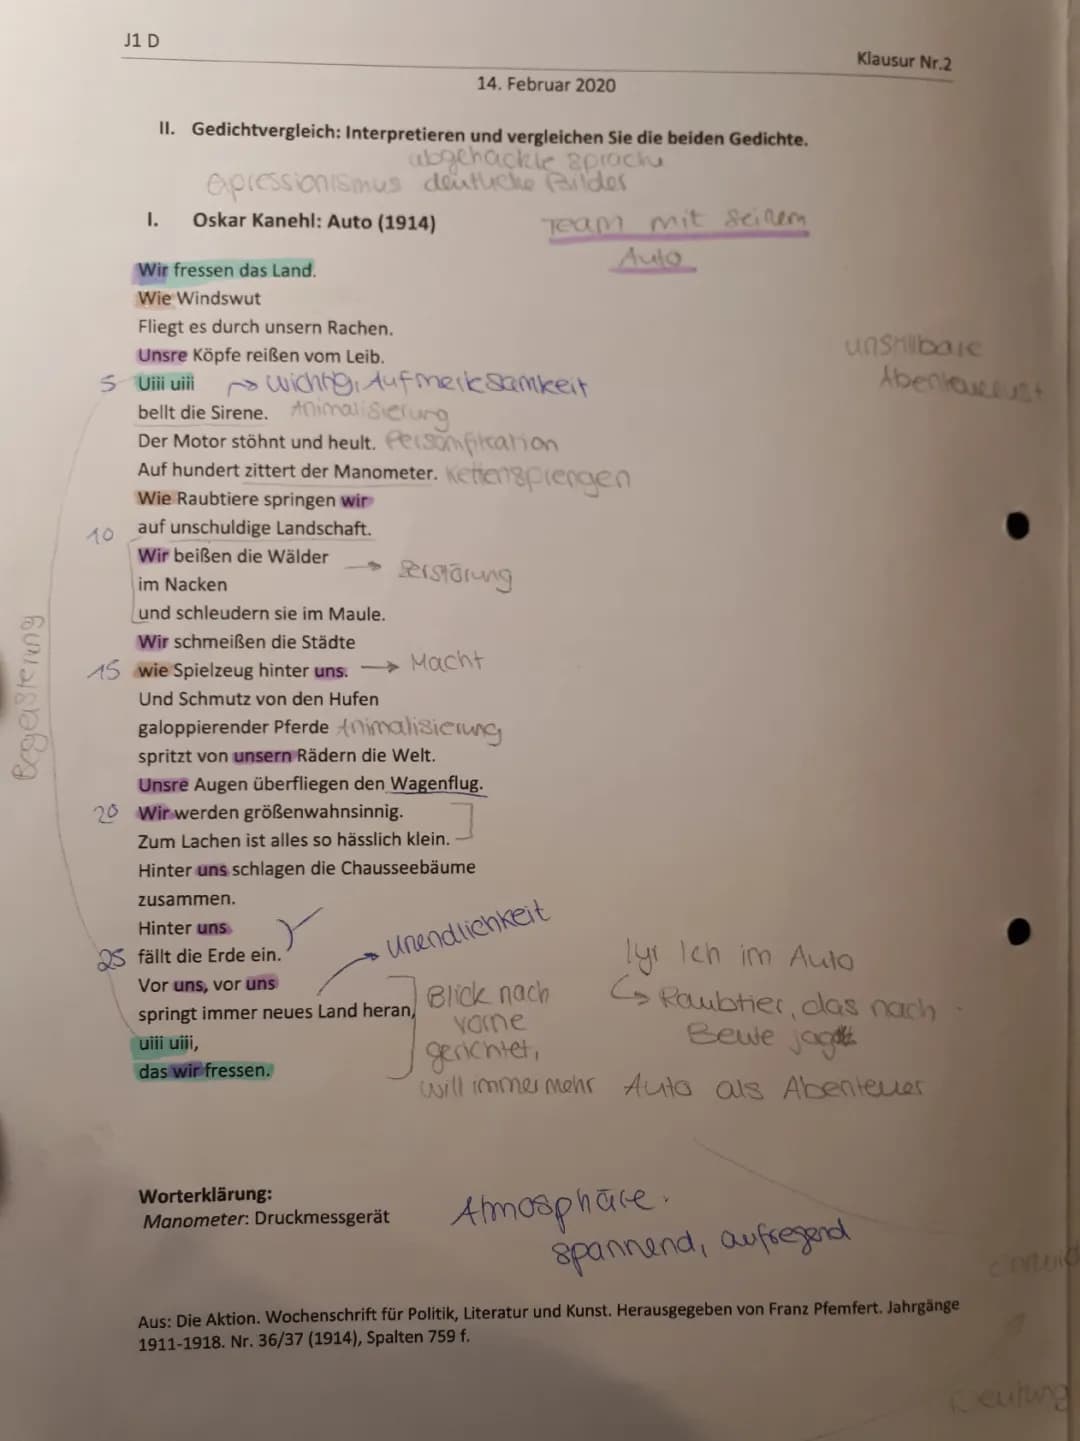 J1 D
Klausur Nr.2
14. Februar 2020
II. Gedichtvergleich: Interpretieren und vergleichen Sie die beiden Gedichte.
abgehackte Sprache
Expressionismus deutliche Bilder
I. Oskar Kanehl: Auto (1914)
Team mit seinem
Auto
Wir fressen das Land.
Wie Windswut
Fliegt es durch unsern Rachen.
Unsre Köpfe reißen vom Leib.
unstillbare
Abenteuerlust
5 Uiii uiii → wichtig, Aufmerksamkeit
bellt die Sirene. Animalisierung
Der Motor stöhnt und heult. Personifikation
Auf hundert zittert der Manometer. Kettensprengen
Wie Raubtiere springen wir
10 auf unschuldige Landschaft.
Wir beißen die Wälder
im Nacken → Zerstörung
und schleudern sie im Maule.
Wir schmeißen die Städte
15 wie Spielzeug hinter uns. → Macht
Begeisterung
Und Schmutz von den Hufen
galoppierender Pferde Animalisierung
spritzt von unsern Rädern die Welt.
Unsre Augen überfliegen den Wagenflug.
20 Wir werden größenwahnsinnig.
Zum Lachen ist alles so hässlich klein.
Hinter uns schlagen die Chausseebäume
zusammen.
Hinter uns
25 fällt die Erde ein. → Unendlichkeit
Vor uns, vor uns
springt immer neues Land heran,
uiii uiii,
das wir fressen.
Blick nach
vorne
gerichtet,
will immer mehr
lyr Ich im Auto
↳ Raubtier, das nach
Beute jagt
Auto als Abenteuer
Worterklärung:
Manometer: Druckmessgerät
Atmosphäre.
spannend, aufregend
Aus: Die Aktion. Wochenschrift für Politik, Literatur und Kunst. Herausgegeben von Franz Pfemfert. Jahrgänge
1911-1918. Nr. 36/37 (1914), Spalten 759 f.